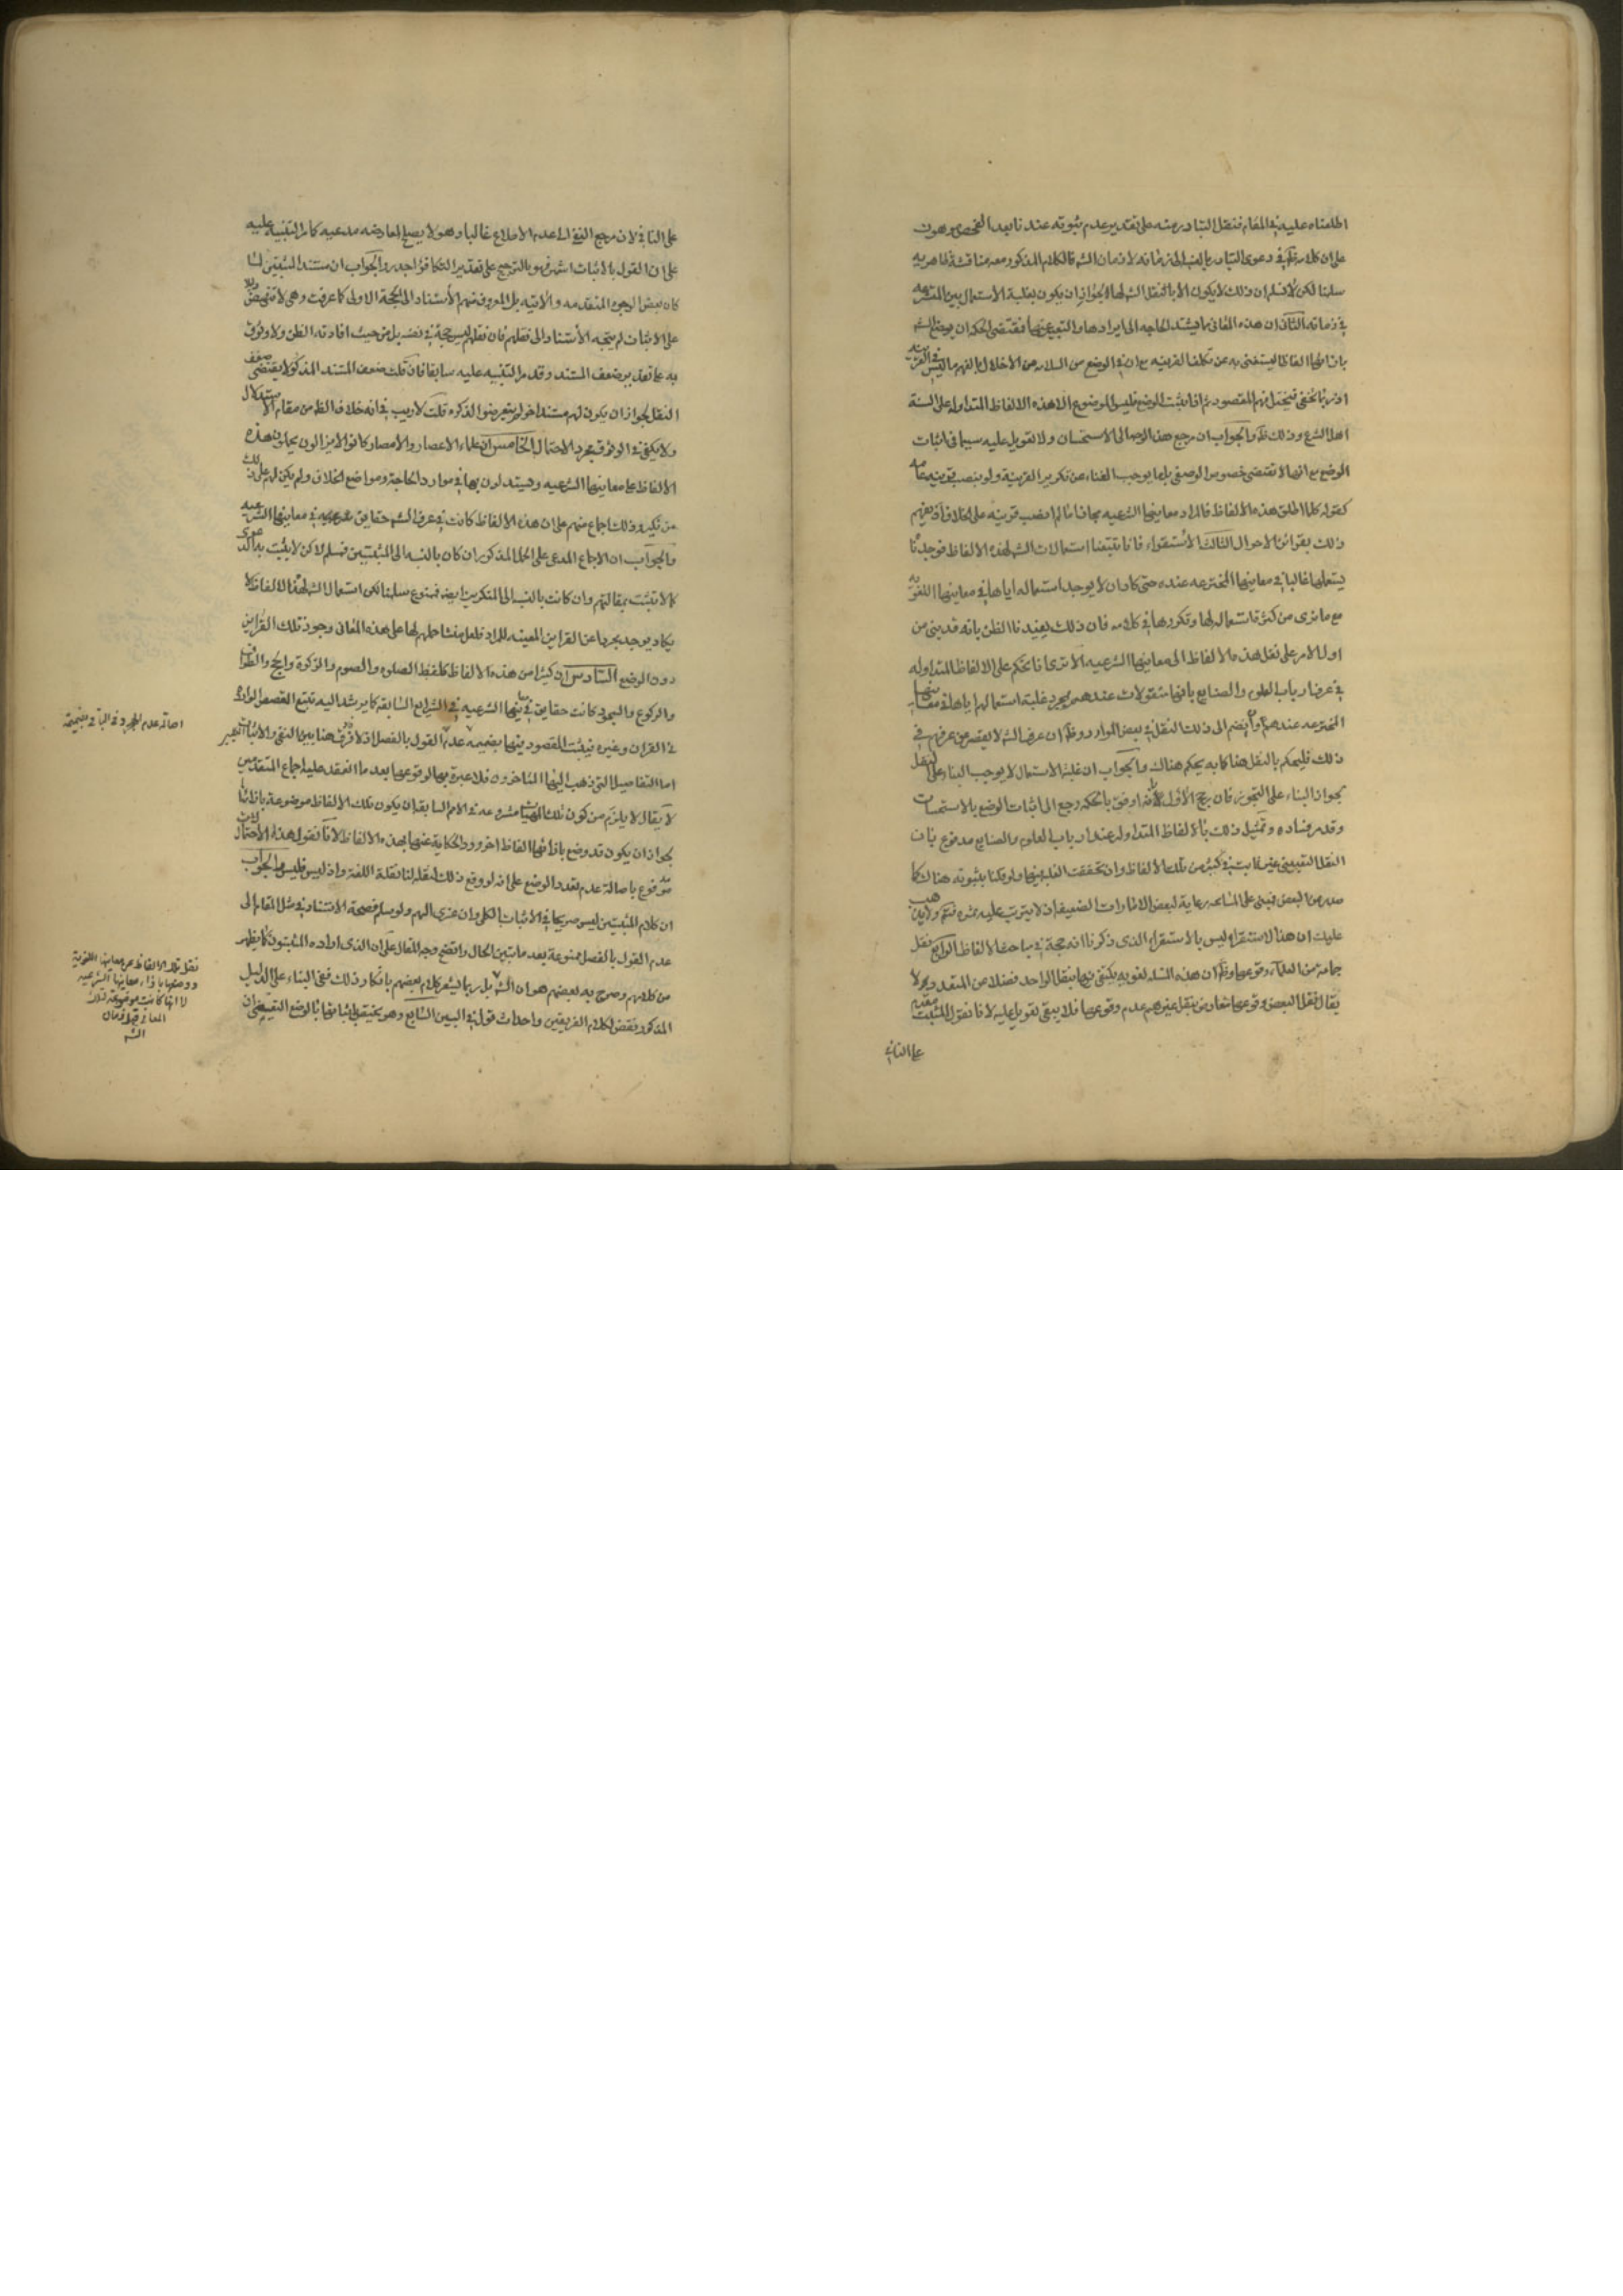 اطلعناه عليه في المقام فنقل التبادر عنه على تقدير عدم ثبوته عندنا بعد الفحص موهون
على ان كلامه في دعوى التبادر بالنسبة الى زمانه لا زمان الشه فالكلام المذكور معه مناقشة ظاهرية
سلمنا لكن لا نسلم ان ذلك لا يكون الا بالنقل الشه لها لجواز ان يكون بغلبة الاستعمال بين المتشرعه
في زمانه الثاني ان هذه المعاني مما يشتد الحاجه الى ايرادها والتعبير عنها فمقتضى الحكمه ان يوضع الشه
بازائها الفاظا ليستغنى به عن تكلف القرينه مع ان في الوضع من السلامه من الاخلال بالفهم ما ليس في القرينه
اذ ربما تخفى فيختل فهم المقصود ثم اذا ثبت الوضع فليس الموضوع الا هذه الالفاظ المتداوله على السنة
اهل الشرع وذلك ظ والجواب ان مرجع هذا الوجه الى الاستحسان ولا تعويل عليه سيما في اثبات
الوضع مع انها لا تقتضى خصوص الوضع بل ما يوجب الغناء عن تكرير القرينة ولو بنصب قرينه عامه
كقوله كلما اطلق هذه الالفاظ فالمراد معانيها الشرعيه مجازا ما لم انصب قرينه على الخلاف او يفهم
ذلك بقرائن الاحوال الثالث الاستقراء فانا تتبعنا استعمالات الشه لهذه الالفاظ فوجدنا
يستعملها غالبا في معانيها المخترعه عنده حتى كاد ان لا يوجد استعماله اياها في معانيها اللغويه
مع ما نرى من كثرة استعماله لها وتكررها في كلامه فان ذلك يفيدنا الظن بانه قد بنى من
اول الامر على نقل هذه الالفاظ الى معانيها الشرعيه الا ترى انا نحكم على الالفاظ المتداوله
في عرف ارباب العلوم والصنايع بانها منقولات عندهم بمجرد غلبة استعمالهم اياها في معانيها
المخترعه عندهم وان لم ينضم الى ذلك النقل في بعض الموارد وظ ان عرف الشه لا يقصر من عرفهم في
ذلك فليحكم بالنقل هنا كما به يحكم هناك والجواب ان غلبة الاستعمال لا يوجب البناء على النقل
لجواز البناء على التجوز فان رجح الاول بانه اوفق بالحكمه رجع الى اثبات الوضع بالاستحسان
وقد مر فساده وتمثيل ذلك بالالفاظ المتداوله عند ارباب العلوم والصنايع مدفوع بان
النقل التعييني غير ثابت في كثير من تلك الالفاظ وان تحققت الغلبة فيها ولو حكمنا بثبوته هناك كما
صدر من البعض فمبنى على المسامحه رعاية لبعض الامارات الضعيفه اذ لا يترتب عليه ثمره مهمه ولا يذهب
عليك ان هذا الاستقراء ليس بالاستقراء الذي ذكرنا انه حجة في مباحث الالفاظ الرابع نقل
جماعة من العلماء وقوعها وظ ان هذه المسئله لغويه يكتفى فيها بنقل الواحد فضلا من المتعدد لا
يقال نقل البعض وقوعها متعارض بنقل غيرهم عدم وقوعها فلا يبقى تعويل عليه لانا نقول المثبت مقدم
على النافي
على النافي لان مرجع النفي الى عدم الاطلاع غالبا وهو لا يصلح لمعارضه مدعيه كما مر التنبيه عليه
على ان القول بالاثبات اشهر فهو بالترجيح على تقدير التكافؤ اجدر والجواب ان مستند المثبتين لما
كان بعض الوجوه المتقدمه والاتيه بل المعروف منهم الاستناد الى الحجة الاولى كما عرفت وهي لا تنهض دليلا
على الاثبات لم يتجه الاستناد الى نقلهم فان نقلهم ليس حجة في نفسه بل من حيث افادته الظن ولا وثوق
به على تقدير ضعف المستند وقد مر التنبيه عليه سابقا فان قلت ضعف المستند المذكور لا يقتضى ضعف
النقل لجواز ان يكون لهم مستند اخر لم يتعرضوا لذكره قلت لا ريب في انه خلاف الظ من مقام الاستدلال
ولا يكفى في الوثوق مجرد الاحتمال الخامس ان علماء الاعصار والامصار كانوا لا يزالون يحملون هذه
الالفاظ على معانيها الشرعيه ويستدلون بها في موارد الحاجة ومواضع الخلاف ولم يكن لهم على ذلك
من نكير وذلك اجماع منهم على ان هذه الالفاظ كانت في عرف الشه حقايق في معانيها الشرعيه
والجواب ان الاجماع المدعى على الحمل المذكور ان كان بالنسبه الى المثبتين فمسلم لاكن لا يثبت به الدعوى
كما لا تثبت بمقالتهم وان كانت بالنسبه الى المنكرين ايضا فممنوع سلمنا لكن استعمال الشه لهذه الالفاظ لا
يكاد يوجد مجردا عن القراين المعينه للمراد فلعل منشا حملهم لها على هذه المعاني وجود تلك القراين
دون الوضع السادس ان كثيرا من هذه الالفاظ كلفظ الصلوه والصوم والزكوة والحج والطواف
والركوع والسجود كانت حقايق في معانيها الشرعيه في الشرايع السابقه كما يرشد اليه تتبع القصص الواردة
في القران وغيره فيثبت المقصود فيها بضميمه عدم القول بالفصل اذ لا فرق هنا بين النفي والاثبات
اما التفاصيل التي ذهب اليها المتاخرون فلا عبرة بها لوقوعها بعد ما انعقد عليه اجماع المتقدمين
لا يقال لا يلزم من كون تلك الهيئات مشروعه في الامم السابقه ان يكون تلك الالفاظ موضوعة بازائها
لجواز ان يكون قد وضع بازائها الفاظ اخر وورد الحكاية عنها بهذه الالفاظ لانا نقول هذا الاحتمال
مدفوع باصالة عدم تعدد الوضع على انه لو وقع ذلك لنقله لنا نقلة اللغة واذ ليس فليس والجواب
ان كلام المثبتين ليس صريحا في الاثبات الكلي وان عزى اليهم ولو سلم فصحة الاستناد في مثل المقام الى
عدم القول بالفصل ممنوعة بعد ما تبين الحال واتضح وجه المقال على ان الذي اراده المثبتون كما يظهر
من كلامهم وصرح به بعضهم هو ان الشه بل ربما يشعر كلام بعضهم بانكار ذلك ففي البناء على الدليل
المذكور نقض لكلام الفريقين واحداث قول في البين السابع وهو يختص باثباتها بالوضع التعييني ان
اصالة عدم الهجر وفي الباقي بضميمة
نقل تلك الالفاظ عن معانيها اللغوية
ووضعها بازاء معانيها الشرعيه
لا انها كانت موضوعة لتلك
المعاني قبل زمان
الشه